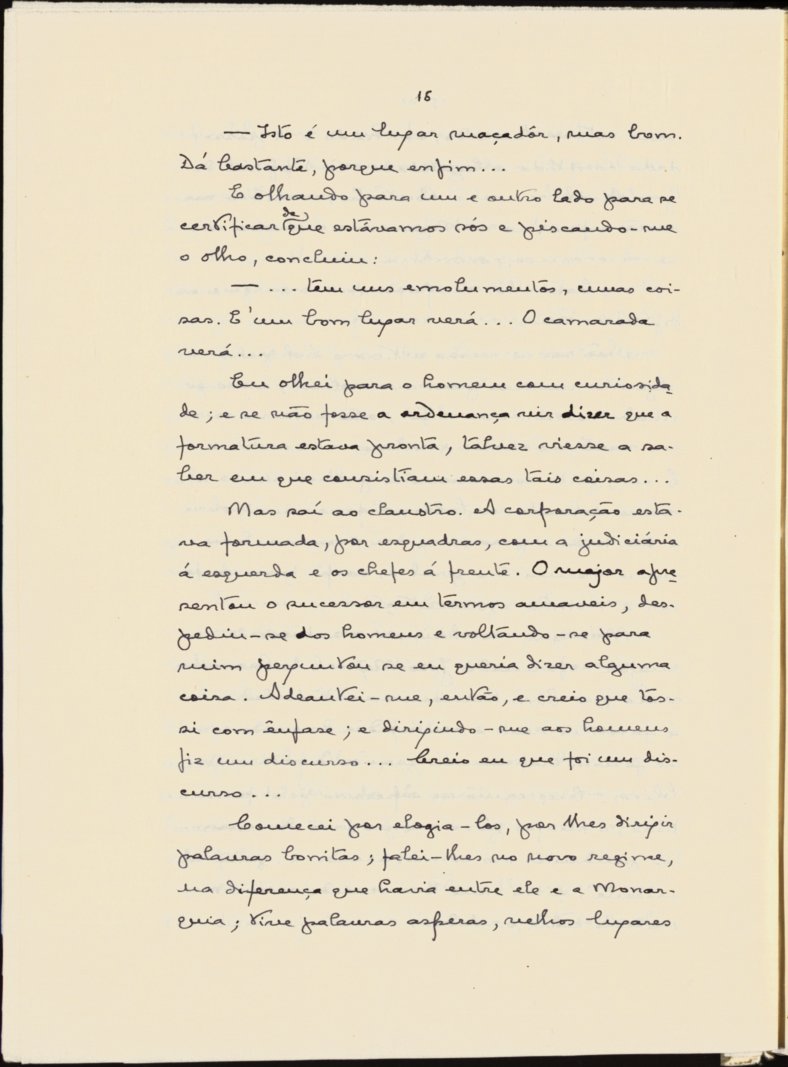 16
— Isto é um lugar maçadôr, mas bom.
Dá bastante, porque enfim...
E olhando para um e outro lado para se
certificar de que estávamos sós e piscando-me
o olho, concluiu:
— ... tem uns emolumentos, umas coi-
sas. E' um bom lugar verá... O camarada
verá...
Eu olhei para o homem com curiosida-
de; e se não fosse a ordenança vir dizer que a
formatura estava pronta, talvez viesse a sa-
ber em que consistiam essas tais coisas...
Mas saí ao claustro. A corporação esta-
va formada, por esquadras, com a judiciária
á esquerda e os chefes á frente. O major apre-
sentou o sucessor em termos amaveis, des-
pediu-se dos homens e voltando-se para
mim perguntou se eu queria dizer alguma
coisa. Adeantei-me, então, e creio que tos-
si com ênfase; e dirigindo-me aos homens
fiz um discurso... Creio eu que foi um dis-
curso...
Comecei por elogia-los, por lhes dirigir
palavras bonitas; falei-lhes no novo regime,
na diferença que havia entre ele e a Monar-
quia; tive palavras asperas, velhos lugares